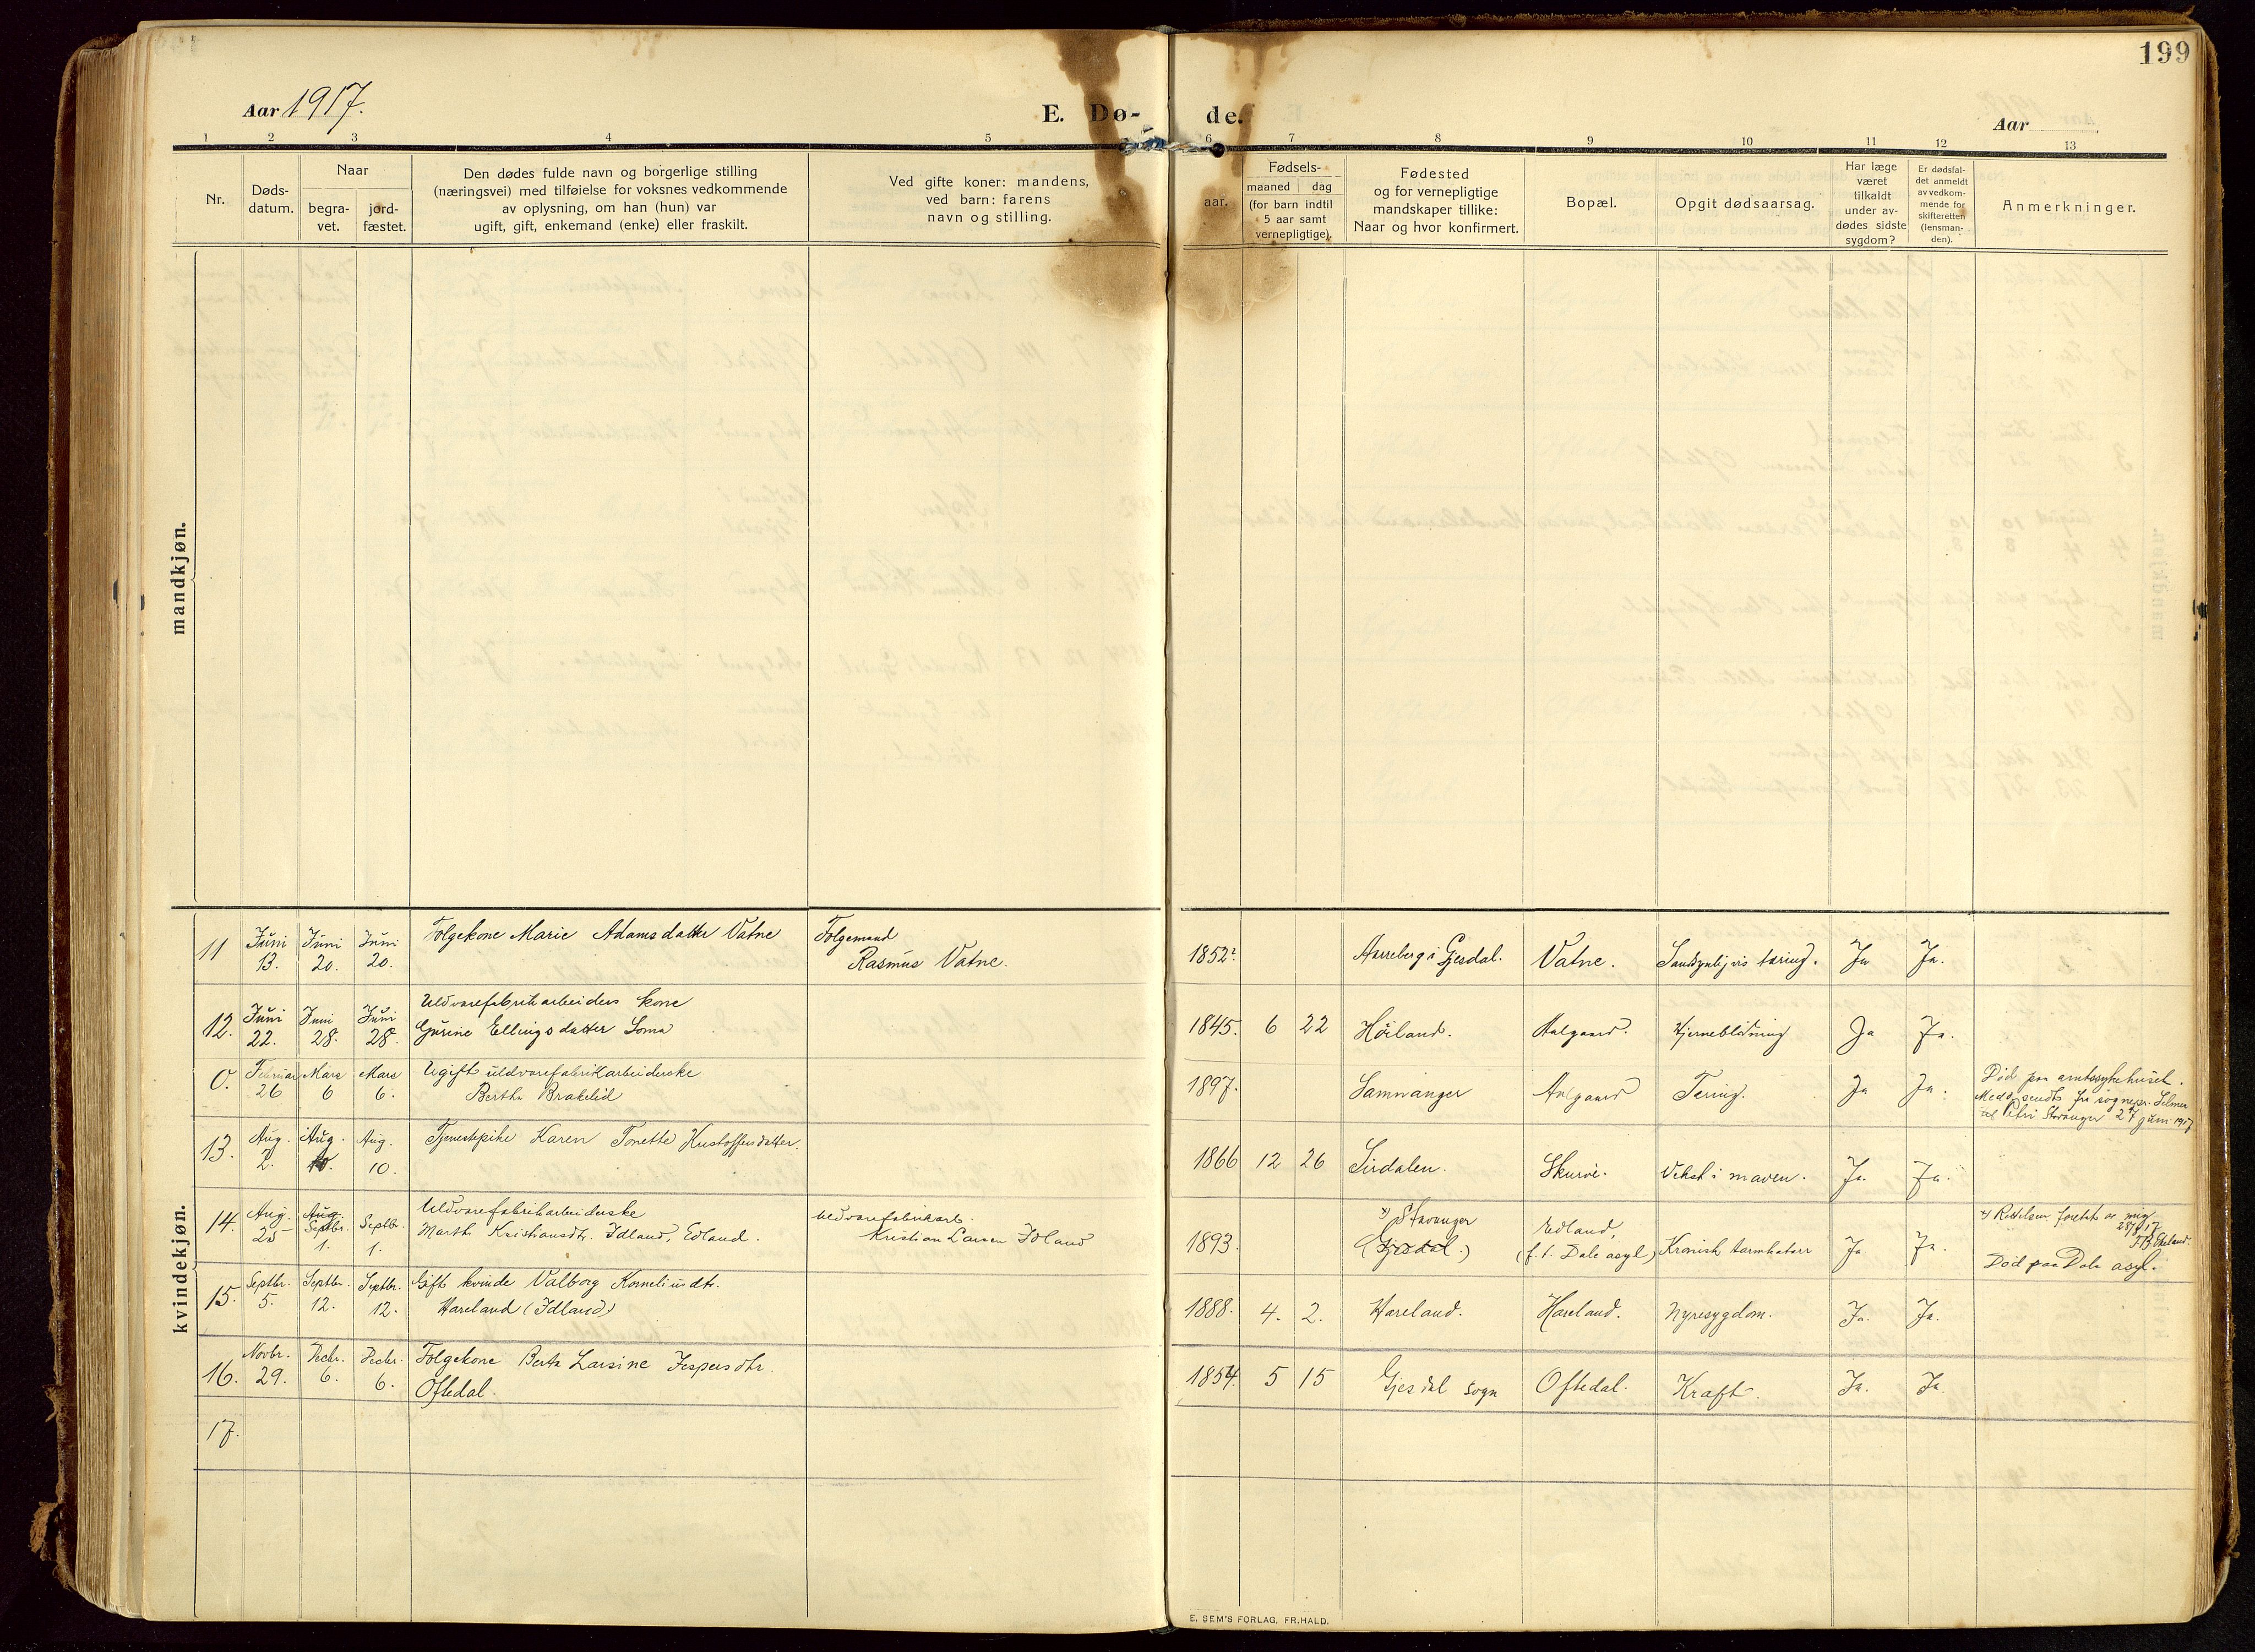 199
Aar 1917.
E. Dø-
de.
Aar
1 2 3 4 5 6 7 8 9 10 11 12 13
Nr.
Døds-
datum.
Naar
begra-
vet.
jord-
fæstet.
Den dødes fulde navn og borgerlige stilling
(næringsvei) med tilføielse for voksnes vedkommende
av oplysning, om han (hun) var
ugift, gift, enkemand (enke) eller fraskilt.
Ved gifte koner: mandens,
ved barn: farens
navn og stilling.
Fødsels-
aar.
maaned dag
(for barn indtil
5 aar samt
vernepligtige).
Fødested
og for vernepligtige
mandskaper tillike:
Naar og hvor konfirmert.
Bopæl.
Opgit dødsaarsag.
Har læge
været
tilkaldt
under av-
dødes sidste
sygdom?
Er dødsfal-
det anmeldt
av vedkom-
mende for
skifteretten
(lensman-
den).
Anmerkninger.
mandkjøn.
kvindekjøn.
11
Juni
13.
Juni
20.
Juni
20.
Folgekone Marie Adamsdatter Vatne
Folgemand
Rasmus Vatne.
1852?
i Gjesdal.
Vatne.
Sandsynligvis tæring.
Ja
Ja.
12.
Juni
22.
Juni
28.
Juni
28.
Uldvarefabrikarbeiders kone
Gurine Ellingsdatter Soma
1845. 6 22
Høiland.
Aalgaard.
Hjerneblødning
Ja
Ja.
0.
Februar
26
Mars
6
Mars
6.
Ugift uldvarefabrikarbeiderske
Bertha Brakelid
1897.
Samnanger
Aalgaard
Tæring.
Ja
Ja.
Død paa amtssykehuset.
Medd. sendt fra sognepr. Selmer
til Petri Stavanger 27 juni 1917
13.
Aug.
2.
Aug.
10.
Aug.
10.
Tjenestepike Karen Tonette Kristoffersdatter.
1866 12 26
Sirdalen.
Skurve.
Vekst i maven.
Ja.
Ja.
14.
Aug.
25
Aug.
Septbr.
1.
Septbr.
1.
Uldvarefabrikarbeiderske
Martha Kristiansdtr. Idland, Edland.
Uldvarefabrikarb.
Kristian Larsen Idland
1893.
x) Stavanger
(Gjesdal.)
Edland,
(f. t. Dale asyl)
Kronisk tarmkatarr
Ja
Ja.
x) Rettelsen foretat av mig
Død paa Dale asyl.
15.
Septbr.
5.
Septbr.
12.
Septbr.
12.
Gift kvinde Valborg Korneliusdtr.
Hareland (Idland)
1888. 4. 2.
Hareland.
Hareland.
Nyresygdom.
Ja.
Ja.
16.
Novbr.
29.
Decbr.
6.
Decbr.
6.
Folgekone Berta Larsine Jespersdtr.
Oftedal.
1854. 5 15
Gjesdal sogn
Oftedal.
Kræft.
Ja.
Ja.
17.
E. SEM'S FORLAG, FR.HALD.